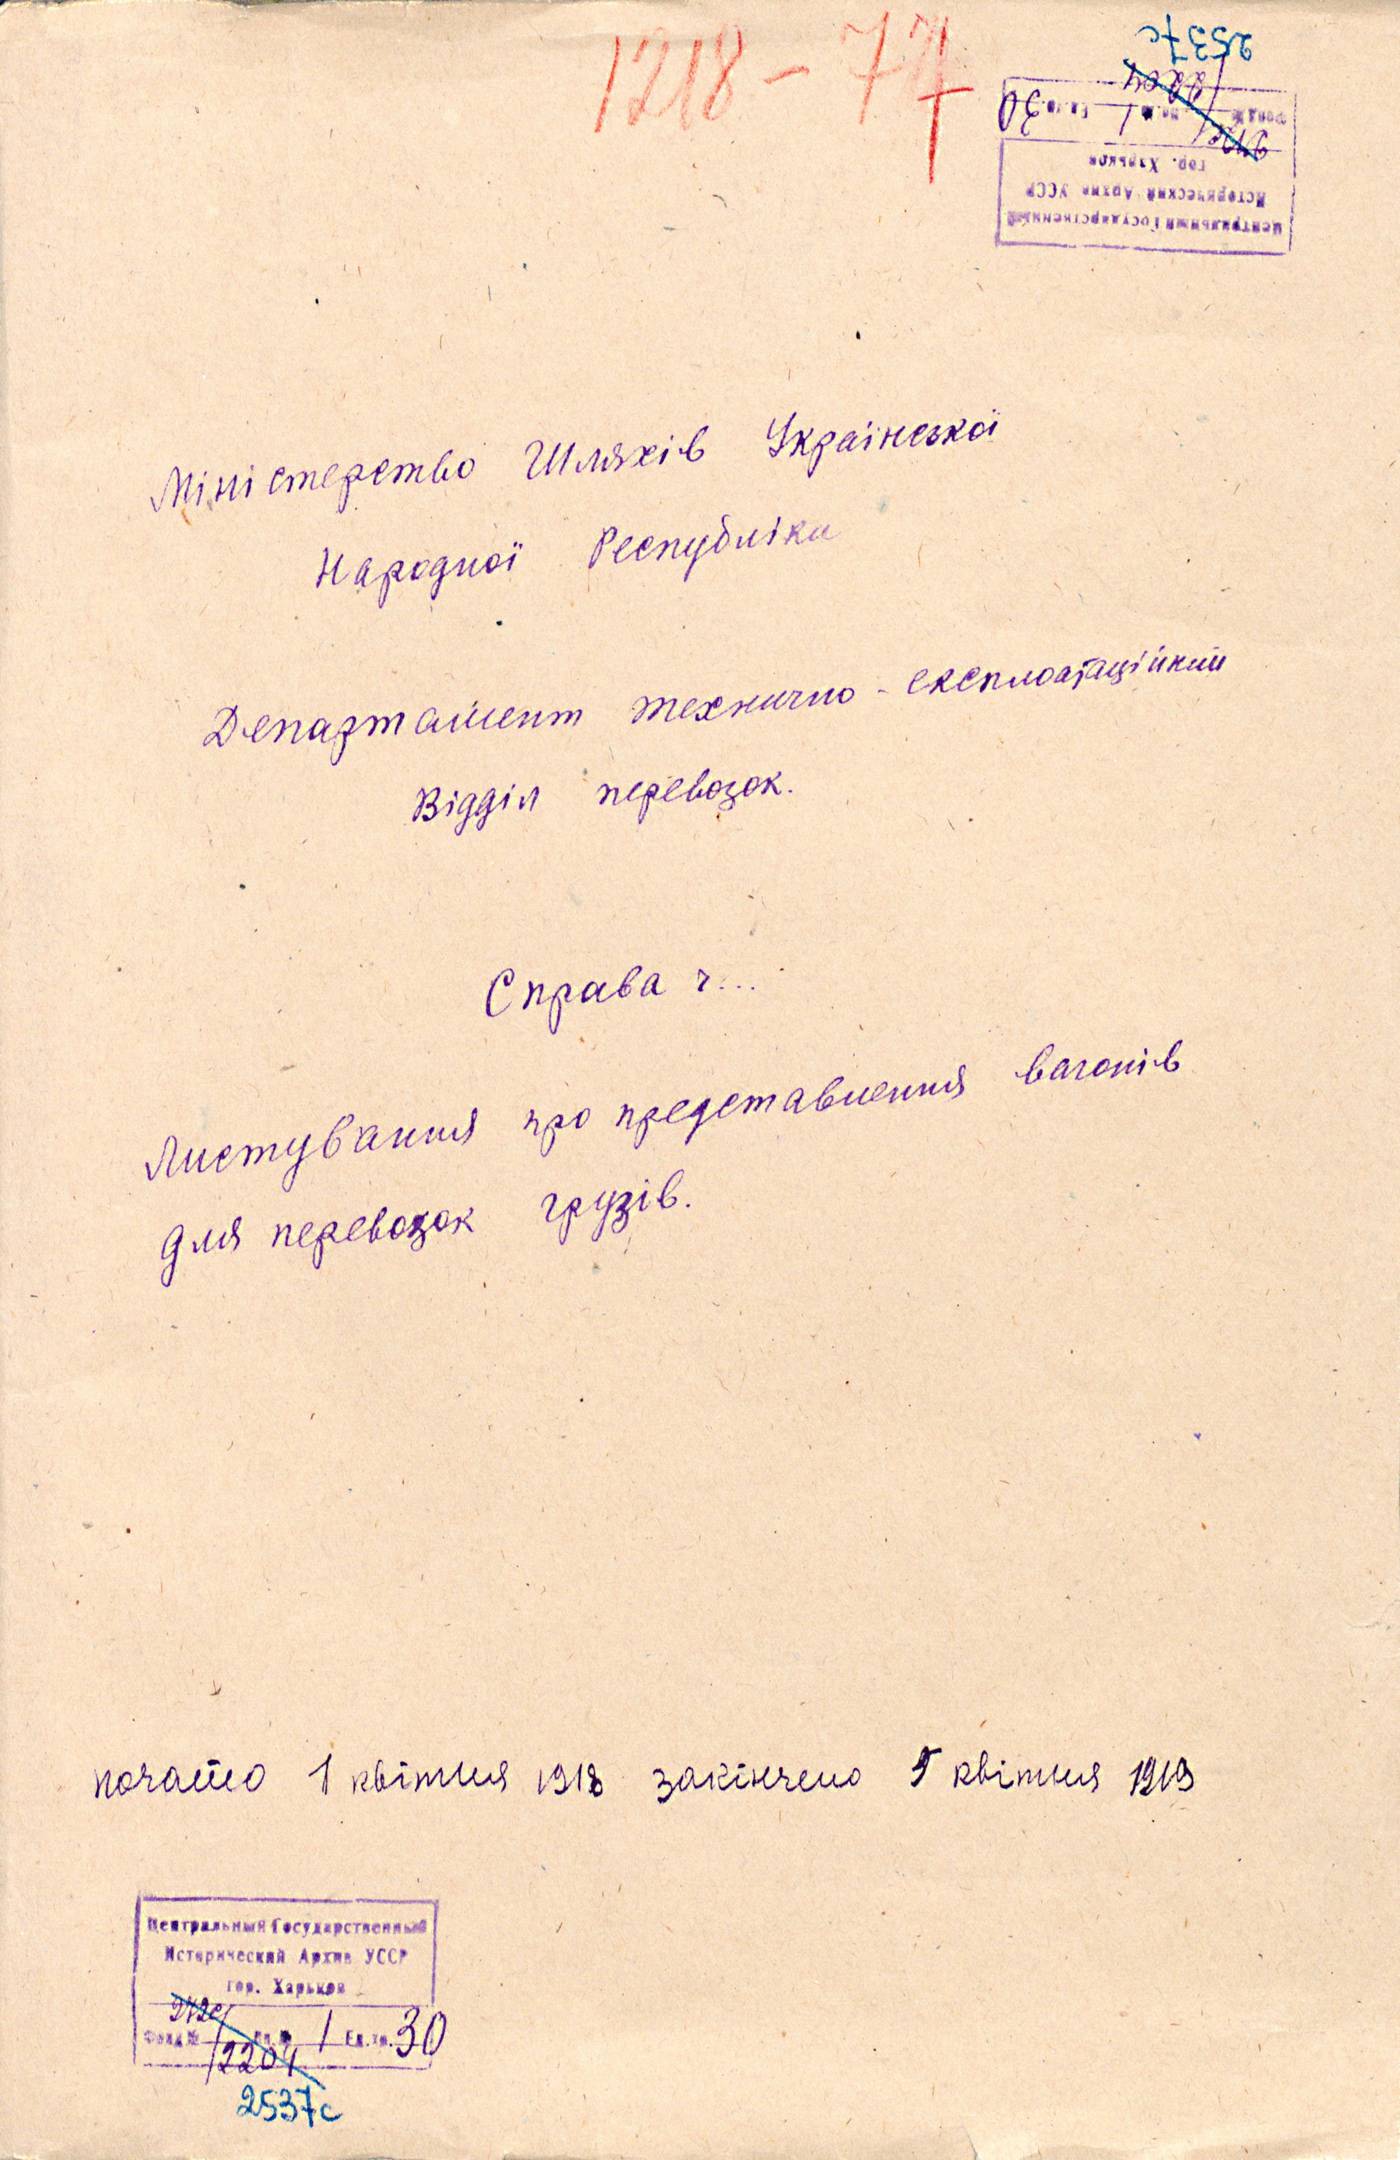 1218 - 77
2537с
Фонд № Оп. № 1 Ед. хр. 30
2204
гор. Харьков
Исторический Архив УССР
Центральный Государственный
Міністерство Шляхів Української
Народної Республіки
Департамент технично - експлоатаційний
Відділ перевозок.
Справа ч...
Листування про представлення вагонів
для перевозок грузів.
почато 1 квітня 1918 закінчено 5 квітня 1919
Центральный Государственный
Исторический Архив УССР
гор. Харьков
Фонд № Оп. № 1 Ед. хр. 30
2204
2537с